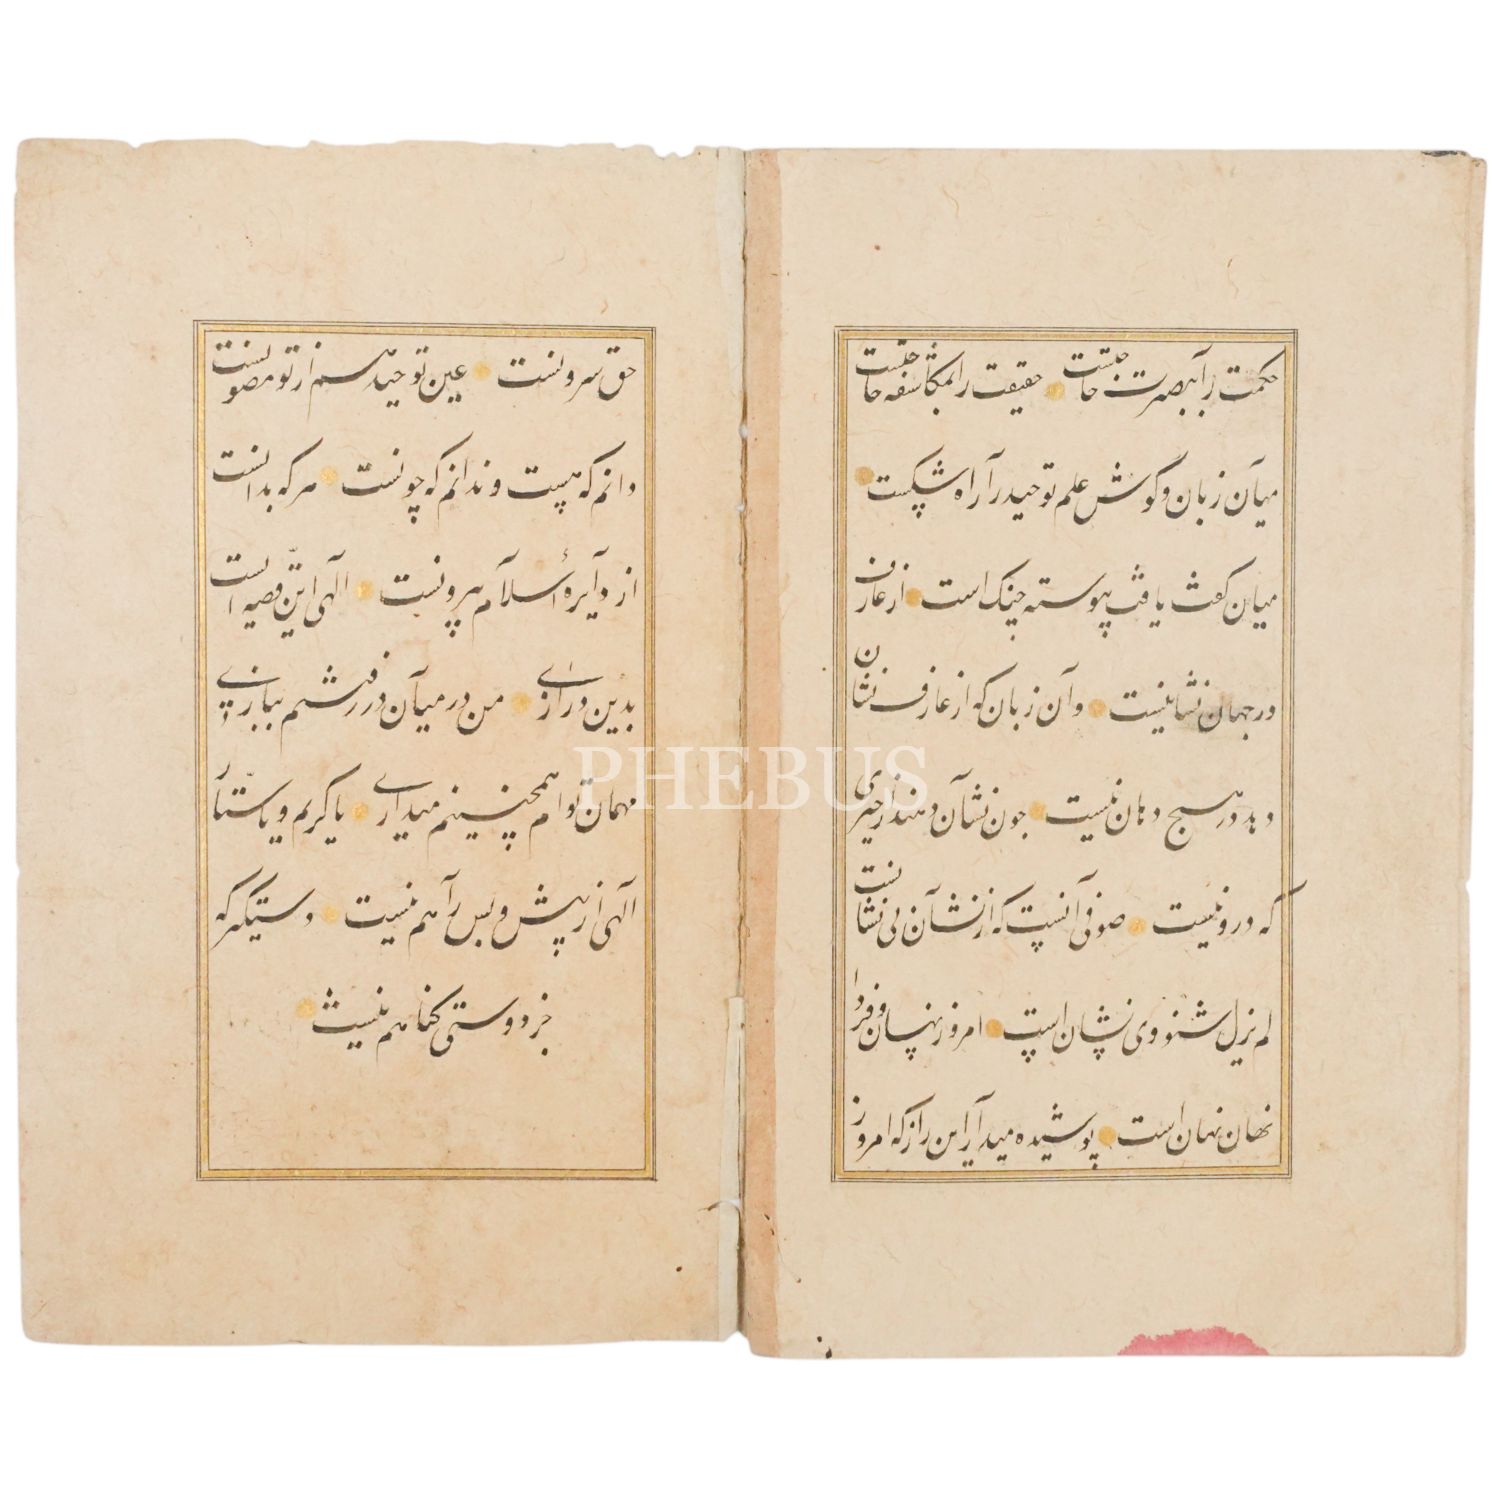 حکمت را ببصیرت حاجتست حقیقت را بمکاشفه حاجتست
میان زبان و گوش علم توحید را راه شکست
میان کفت یافت پیوسته جنک است از عارف
در جهان نشان نیست وآن زبان که از عارف نشان
دهد در هیچ دهان نیست جون نشان دهند از جیزی
که درو نیست صوفی آنست که از نشان بی نشانست
لم یزل شنو وی نشان است امروز نهان و فردا
نهان نهان است پوشیده میدار این راز که امروز
حق سرونست عین توحید هم از تو مصونست
دانم که هست و ندانم که چونست هر که بدانست
از دایرۀ اسلام بیرونست الهی این قصه است
بدین درازی من در میان در رفتم ببازی
مهمان توام همچنینم میداری یا کریم و یا ستار
الهی از پیش و پس راهم نیست دستم گیر که
جز دوستی کناهم نیست
PHEBUS